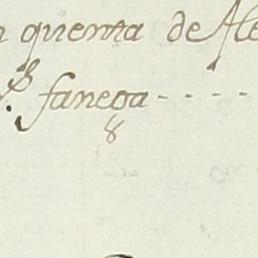 quenta de Ale
fanega - - - -
8